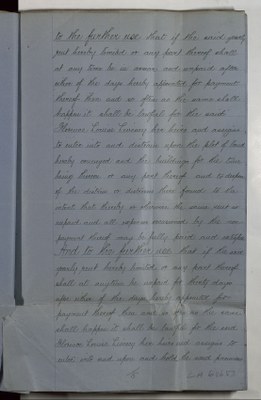 to the further use that if the said yearly
rent hereby limited or any part thereof shall
at any time be in arrear and unpaid
after of the days hereby appointed for payment
thereof then and so often as the same shall
happen it shall be lawful for the said
Florence Louise her heirs and assigns
to enter into and distrain upon the plot of land
hereby conveyed and the buildings for the time
being thereon or any part thereof and to dispose
of the distress or distresses there found to the
intent that thereby or otherwise the same rent in
arrear and all expenses occasioned by the non
payment thereof may be fully paid and satisfied
And to the further use that if the said
yearly rent hereby limited or any part thereof
shall at any time be unpaid for thirty days
after of the days hereby appointed for
payment thereof then and so often as the same
shall happen it shall be lawful for the said
Florence Louise her heirs and assigns to
enter into and upon and hold the said premises